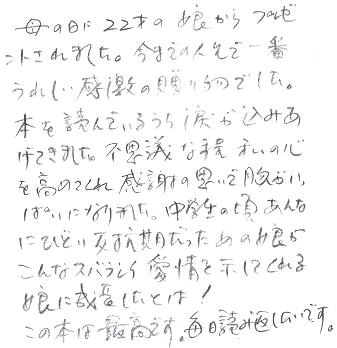 母の日に22才の娘からプレゼ
ントされました。今までの人生で一番
うれしい感激の贈り物でした。
本を読んでいるうち涙が込みあ
げてきました。不思議な程 私の心
を高めてくれ 感謝の思いで胸がい
ぱいになりました。中学生の頃あんな
にひどい反抗期だったあの娘が
こんなスバラシイ愛情を示してくれる
娘に成長したとは!
この本は最高です。毎日読み返したいです。